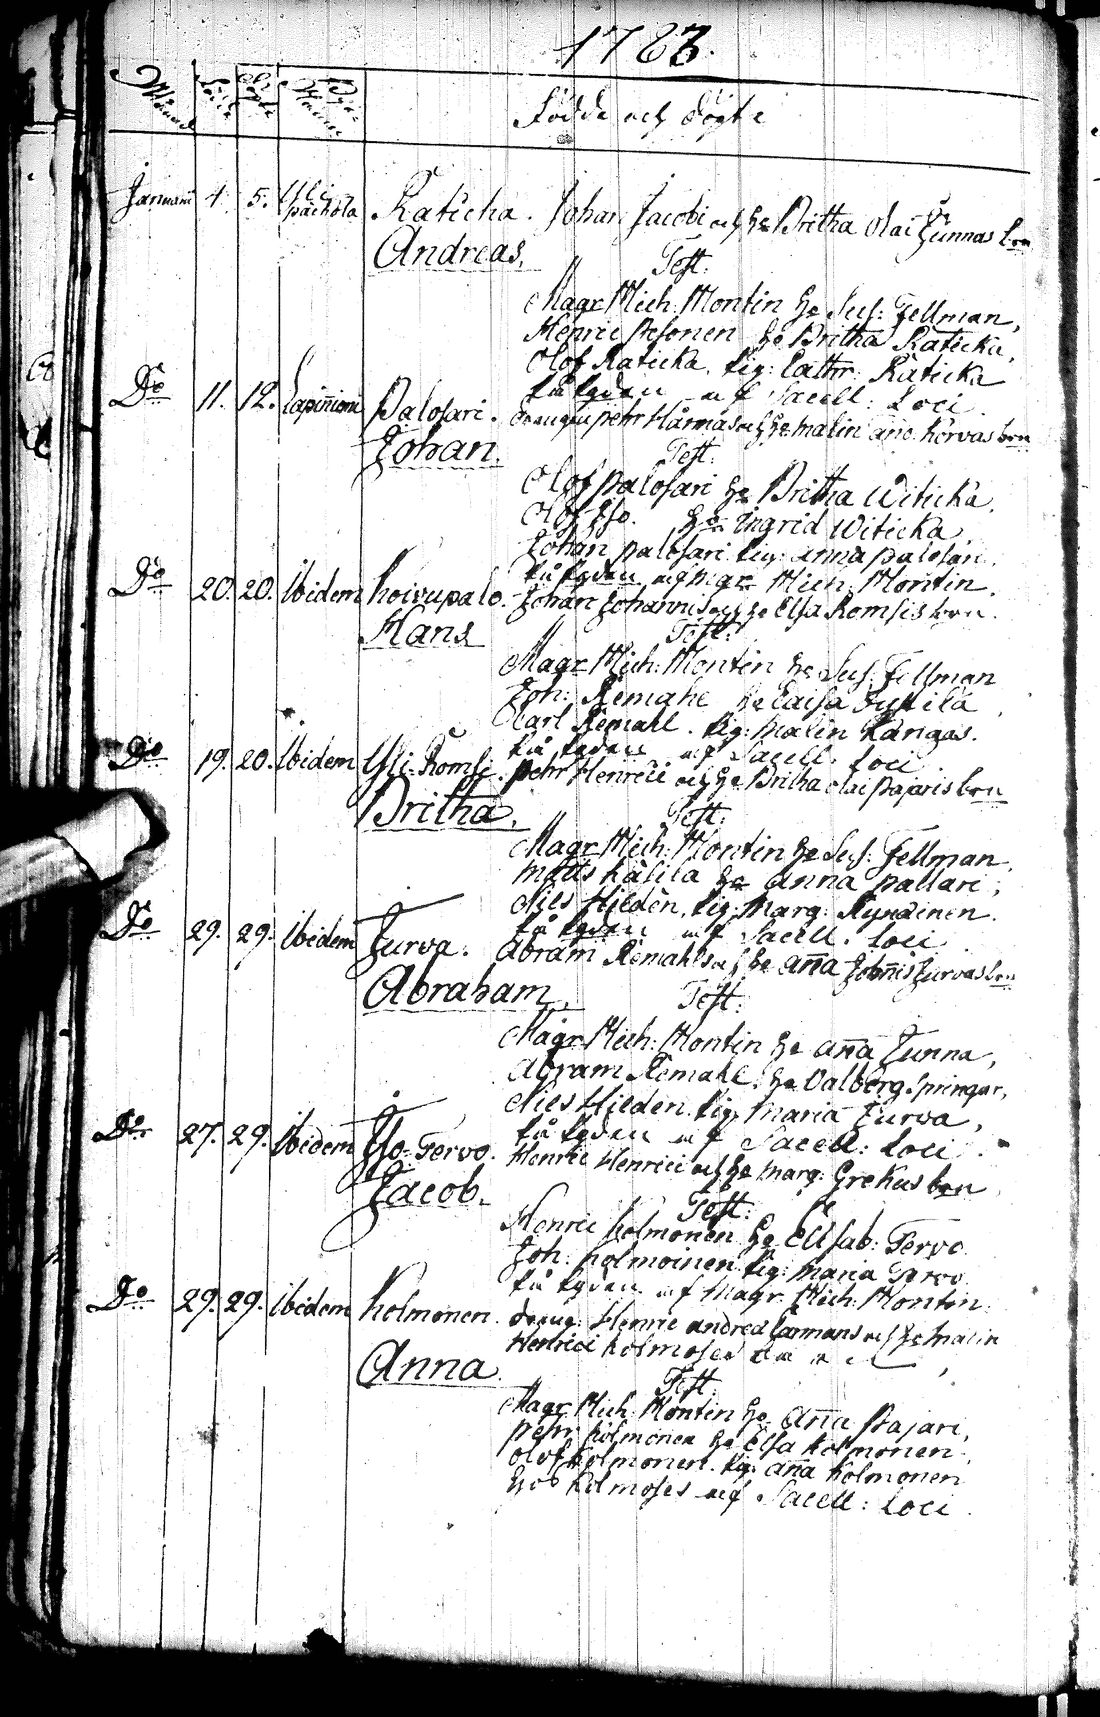 1783.
Månad Född Döpte Byanamn Födde och döpte
Januari 4. 5. Yli paickola Raticka. Johan Jacobi och H: Britha Olai Junnas barn
Andreas. Test:
Magr Mich: Montin H: Sus: Fellman,
Henric Pesonen H: Britha Raticka,
Olof Raticka, Pig: Cathr: Raticka
af Sacell: Loci.
Do 11. 12. Lapinniemi Palosari. drengen Pehr Hårmas och H: Malin And: Korvas barn
Johan. Test:
Olof Palosari H: Britha Witicka,
Olof H: Ingrid Witicka
Johan Palosari Pig: Anna Palosari.
af Magr Mich: Montin.
Do 20. 20. Ibidem Koivupalo. Johan Johannis och H: Elsa Romsis barn.
Hans Test:
Magr Mich: Montin H: Sus: Fellman
Joh: Remahl H: Caisa
Carl Remahl. Pig: Malin Kangas.
af Sacell: Loci.
Do 19. 20. Ibidem Yli-Romsi. Pehr Henrici och H: Britha Olai Pajaris barn
Britha. Test:
Magr Mich: Montin H: Sus: Fellman
Matts H: Anna Pallari;
Nils Hilden, Pig: Marg: Rynainen.
af Sacell: Loci.
Do 29. 29. Ibidem Jurva. Abram Remahls och H: Anna Johannis Jurvas barn
Abraham, Test:
Magr Mich: Montin H: Anna Junna,
Abram Remahl. H: Valborg Springar,
Nils Hilden. Pig: Maria Jurva,
af Sacell: Loci.
Do 27. 29. Ibidem Iso-Tervo. Henric Henrici och H: Marg: Grekus barn
Jacob. Test:
Henric Kolmonen H: Elisab: Tervo
Joh: Kolmoinen Pig: Maria Tervo
af Magr Mich: Montin.
Do 29. 29. Ibidem Kolmonen. dreng: Henric Andreæ Carmans och H: Malin
Henrici Kolmoses
Anna. Test:
Magr Mich: Montin H: Anna Pajari,
Pehr Kolmonen H: Elsa Kolmonen.
Olof Kolmonen. Pig: Anna Kolmonen
hos Kolmoses af Sacell: Loci.